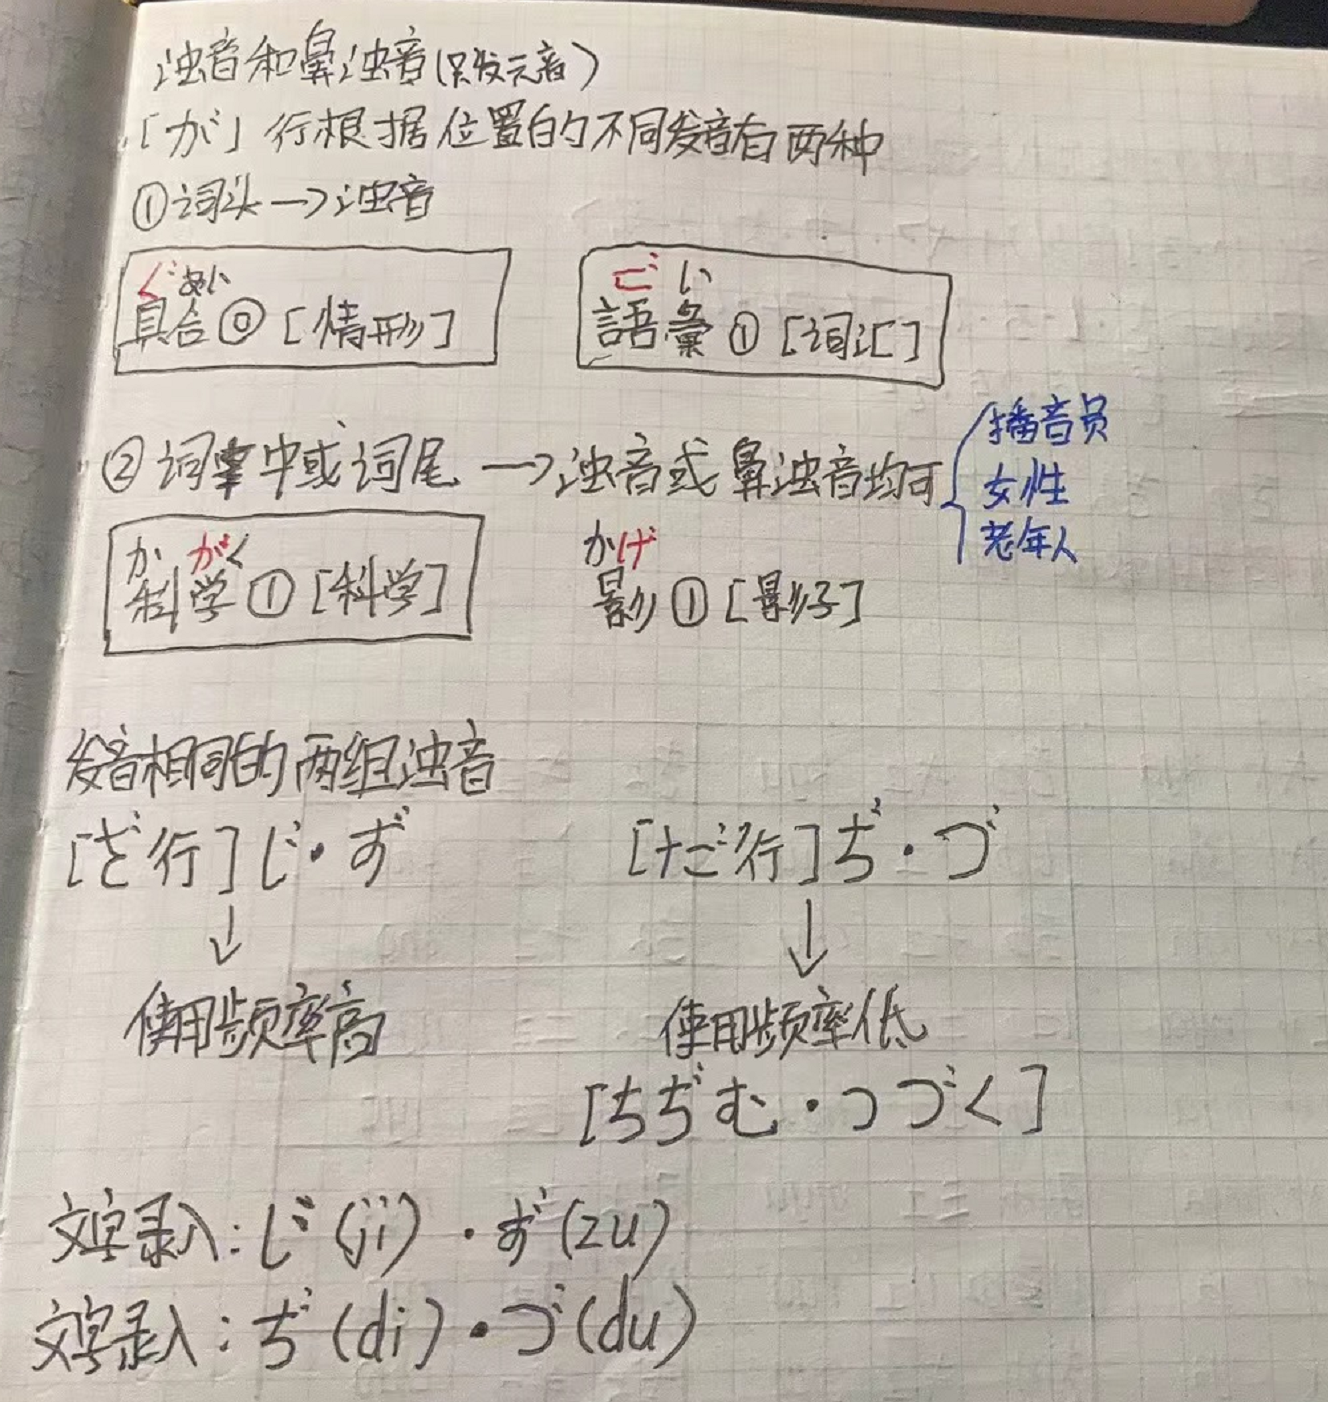 浊音和鼻浊音(只发元音)
「が」行根据位置的不同发音有两种
①词头→浊音
ぐあい ごい
具合⓪[情形] 語彙①[词汇]
播音员
②词中或词尾→浊音或鼻浊音均可
女性
老年人
かがく かげ
科学①[科学] 影①[影子]
发音相同的两组浊音
[ざ行]じ・ず [だ行]ぢ・づ
↓ ↓
使用频率高 使用频率低
[ちぢむ・つづく]
文字录入:じ(ji)・ず(zu)
文字录入:ぢ(di)・づ(du)